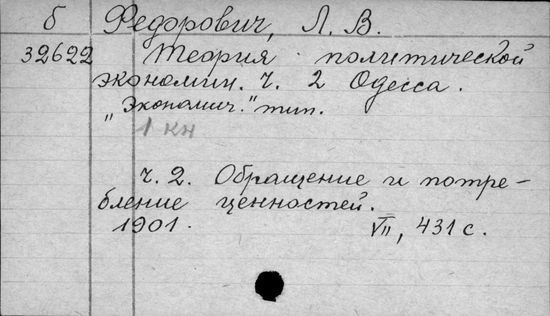 б Федорович, Л. В.
32622 Теория политической
экономии. ч. 2 Одесса.
„Экономич." тип.
1 кн
ч. 2. Обращение и потре-
бление ценностей.
1901. VII, 431 с.